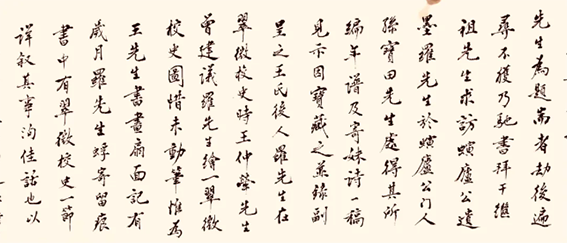 先生為題耑者劫後遍
尋不獲乃馳書拜干繼
祖先生求訪螾廬公遺
墨羅先生於螾廬公門人
孫寶田先生處得其所
編年譜及寄妹詩一稿
見示因寶藏之並錄副
呈之王氏後人羅先生在
翠微校史時王仲犖先生
曾建議羅先生繪一翠微
校史圖惜未動筆惟為
王先生書畫扇面記有
歲月羅先生蜉寄留痕
書中有翠微校史一節
詳叙其事洵佳話也以